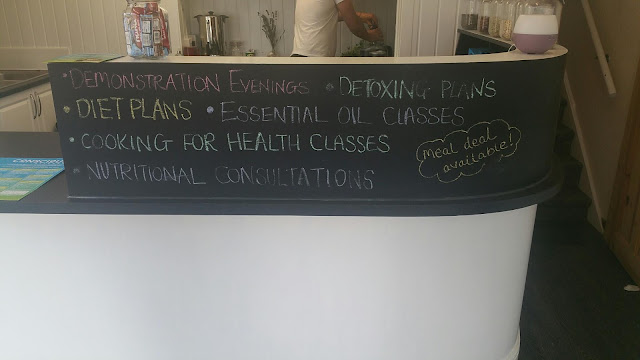 • DEMONSTRATION EVENINGS • DETOXING PLANS
• DIET PLANS • ESSENTIAL OIL CLASSES
• COOKING FOR HEALTH CLASSES
• NUTRITIONAL CONSULTATIONS
meal deal
available!